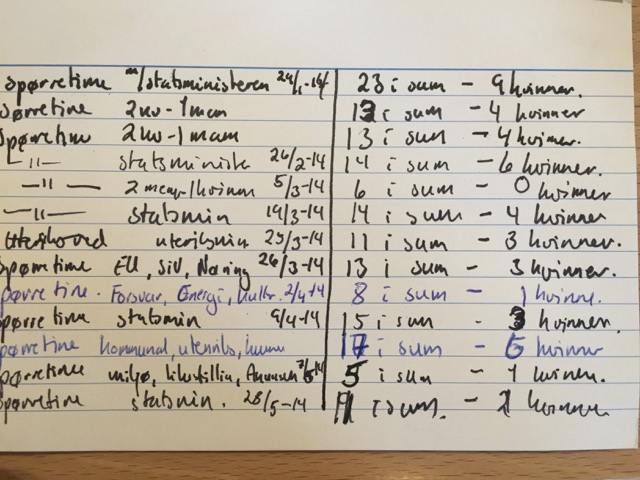 spørretime m/statsministeren 29/1-14 23 i sum - 9 kvinner.
Spørretime 2kv-1mann 13 i sum - 4 kvinner
Spørretime 2kv-1mann 13 i sum - 4 kvinner.
-"- statsministe 26/2-14 14 i sum - 6 kvinner.
-"- 2 menn-1kvinne 5/3-14 6 i sum - 0 kvinner
-"- statsmin 19/3-14 14 i sum - 4 kvinner
utenriksmin 25/3-14 11 i sum - 3 kvinner.
Spørretime EU, Siv, Næring 26/3-14 13 i sum - 3 kvinner.
spørretime. Forsvar, Energi, Kultur. 2/4-14 8 i sum - 1 kvinne.
spørretime statsmin 9/4-14 15 i sum - 3 kvinner.
spørretime kommunal, utenriks, 17 i sum - 5 kvinner
spørretime miljø, likestilling, 5 i sum - 1 kvinne.
spørretime statsmin. 28/5-14 11 i sum. - 2 kvinner